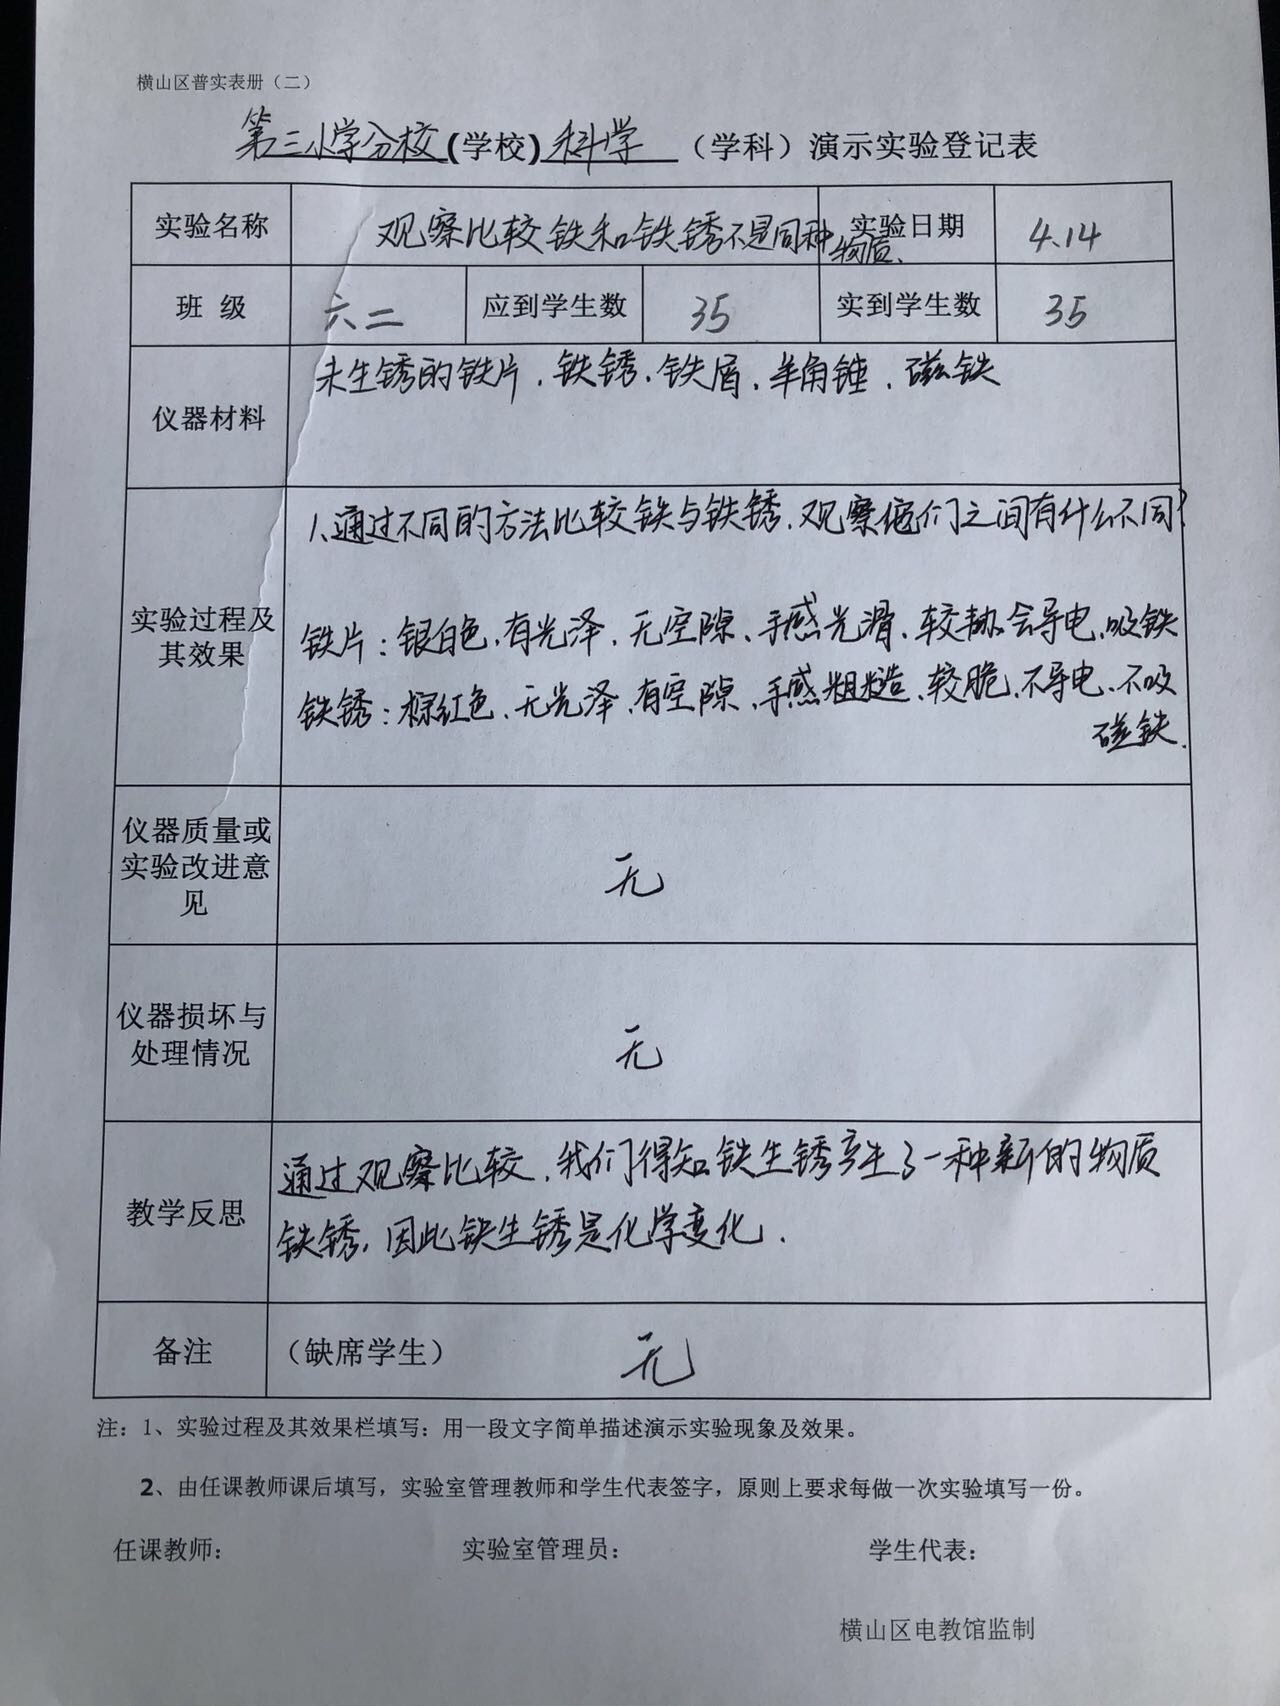 横山区普实表册（二）
第三小学分校(学校)科学（学科）演示实验登记表
实验名称 观察比较铁和铁锈不是同种物质. 实验日期 4.14
班 级 六二 应到学生数 35 实到学生数 35
仪器材料 未生锈的铁片、铁锈、铁屑、羊角锤、磁铁
1、通过不同的方法比较铁与铁锈、观察他们之间有什么不同?
实验过程及
其效果
铁片：银白色、有光泽、无空隙、手感光滑、较韧、会导电、吸铁
铁锈：棕红色、无光泽、有空隙、手感粗糙、较脆、不导电、不吸
磁铁.
仪器质量或
实验改进意
见
无
仪器损坏与
处理情况
无
教学反思
通过观察比较，我们得知铁生锈产生了一种新的物质
铁锈，因此铁生锈是化学变化.
备注 （缺席学生） 无
注：1、实验过程及其效果栏填写：用一段文字简单描述演示实验现象及效果。
2、由任课教师课后填写，实验室管理教师和学生代表签字，原则上要求每做一次实验填写一份。
任课教师： 实验室管理员： 学生代表：
横山区电教馆监制